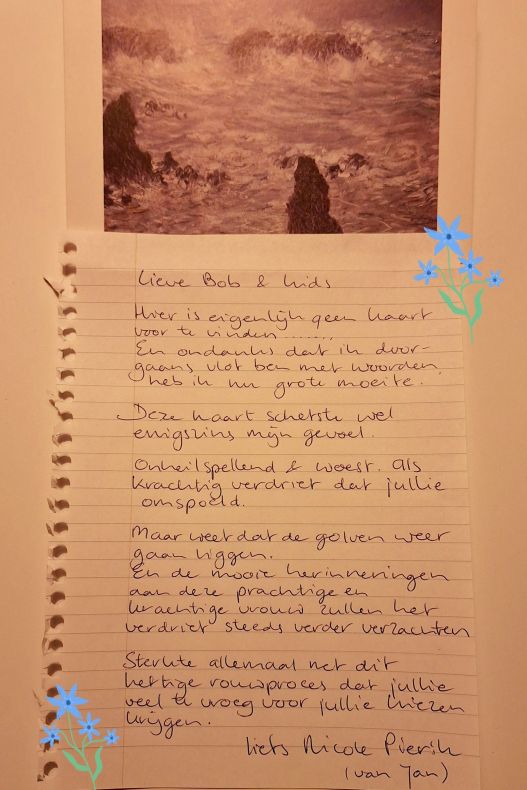 Lieve Bob & kids
Hier is eigenlijk geen kaart
voor te vinden.......
En ondanks dat ik door-
gaans vlot ben met woorden
heb ik nu grote moeite.
Deze kaart schetste wel
enigszins mijn gevoel.
Onheilspellend & woest. Als
krachtig verdriet dat jullie
omspoeld.
Maar weet dat de golven weer
gaan liggen.
En de mooie herinneringen
aan deze prachtige en
krachtige vrouw zullen het
verdriet steeds verder verzachten
Sterkte allemaal met dit
heftige rouwproces dat jullie
veel te vroeg voor jullie kiezen
krijgen.
liefs Nicole Pierik
(van Jan)